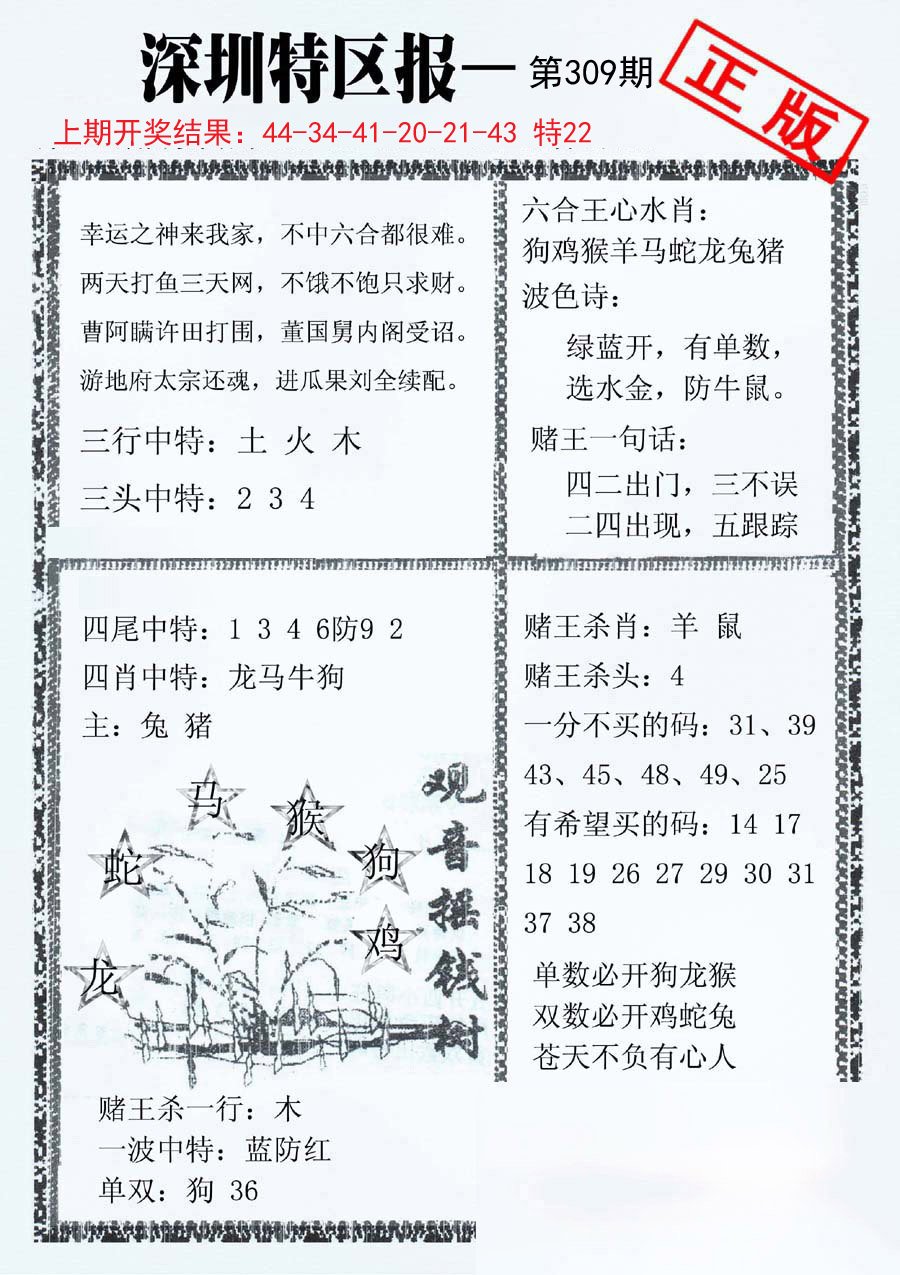 深圳特区报—第309期
正版
上期开奖结果：44-34-41-20-21-43 特22
幸运之神来我家，不中六合都很难。
两天打鱼三天网，不饿不饱只求财。
曹阿瞒许田打围，董国舅内阁受诏。
游地府太宗还魂，进瓜果刘全续配。
三行中特：土 火 木
三头中特：2 3 4
六合王心水肖：
狗鸡猴羊马蛇龙兔猪
波色诗：
绿蓝开，有单数，
选水金，防牛鼠。
赌王一句话：
四二出门，三不误
二四出现，五跟踪
四尾中特：1 3 4 6防9 2
四肖中特：龙马牛狗
主：兔 猪
马
猴
蛇
狗
鸡
龙
观音摇钱树
赌王杀一行：木
一波中特：蓝防红
单双：狗 36
赌王杀肖：羊 鼠
赌王杀头：4
一分不买的码：31、39
43、45、48、49、25
有希望买的码：14 17
18 19 26 27 29 30 31
37 38
单数必开狗龙猴
双数必开鸡蛇兔
苍天不负有心人